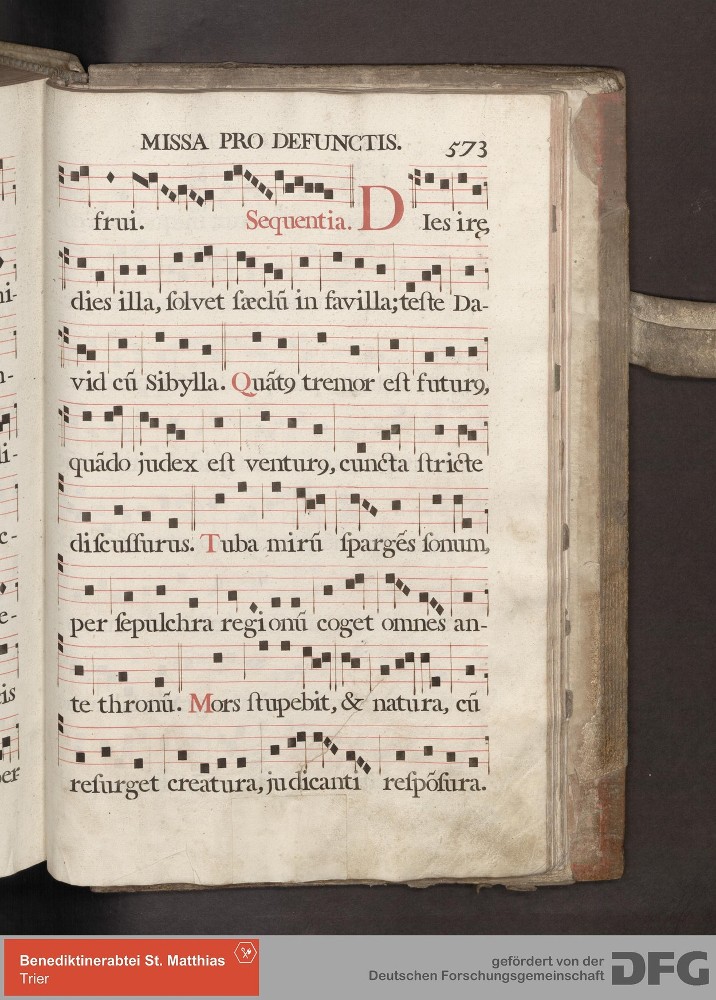 MISSA PRO DEFUNCTIS. 573
frui. Sequentia. DIes irę,
dies illa, ſolvet ſæclũ in favilla; teſte Da-
vid cũ Sibylla. Quãtꝰ tremor eſt futurꝰ,
quãdo judex eſt venturꝰ, cuncta ſtricte
diſcuſſurus. Tuba mirũ ſpargẽs ſonum,
per ſepulchra regionũ coget omnes an-
te thronũ. Mors ſtupebit, & natura, cũ
reſurget creatura, judicanti reſpõſura.
Benediktinerabtei St. Matthias
Trier
gefördert von der
Deutschen Forschungsgemeinschaft DFG